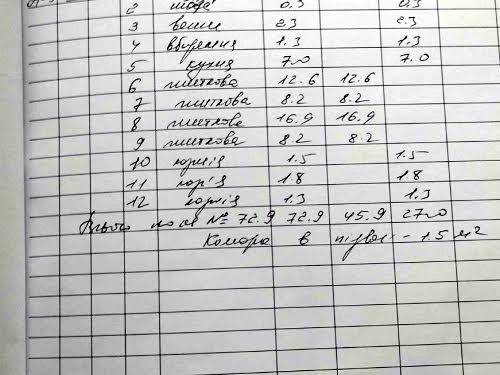 2 шафа 0.3 0.3
3 ванна 2.3 2.3
4 вбиральня 1.3 1.3
5 кухня 7.0 7.0
6 житлова 12.6 12.6
7 житлова 8.2 8.2
8 житлова 16.9 16.9
9 житлова 8.2 8.2
10 лоджія 1.5 1.5
11 1.8 1.8
12 лоджія 1.3 1.3
Всього по кв № 72.9 72.9 45.9 27.0
Комора в підвалі - 1.5 м2